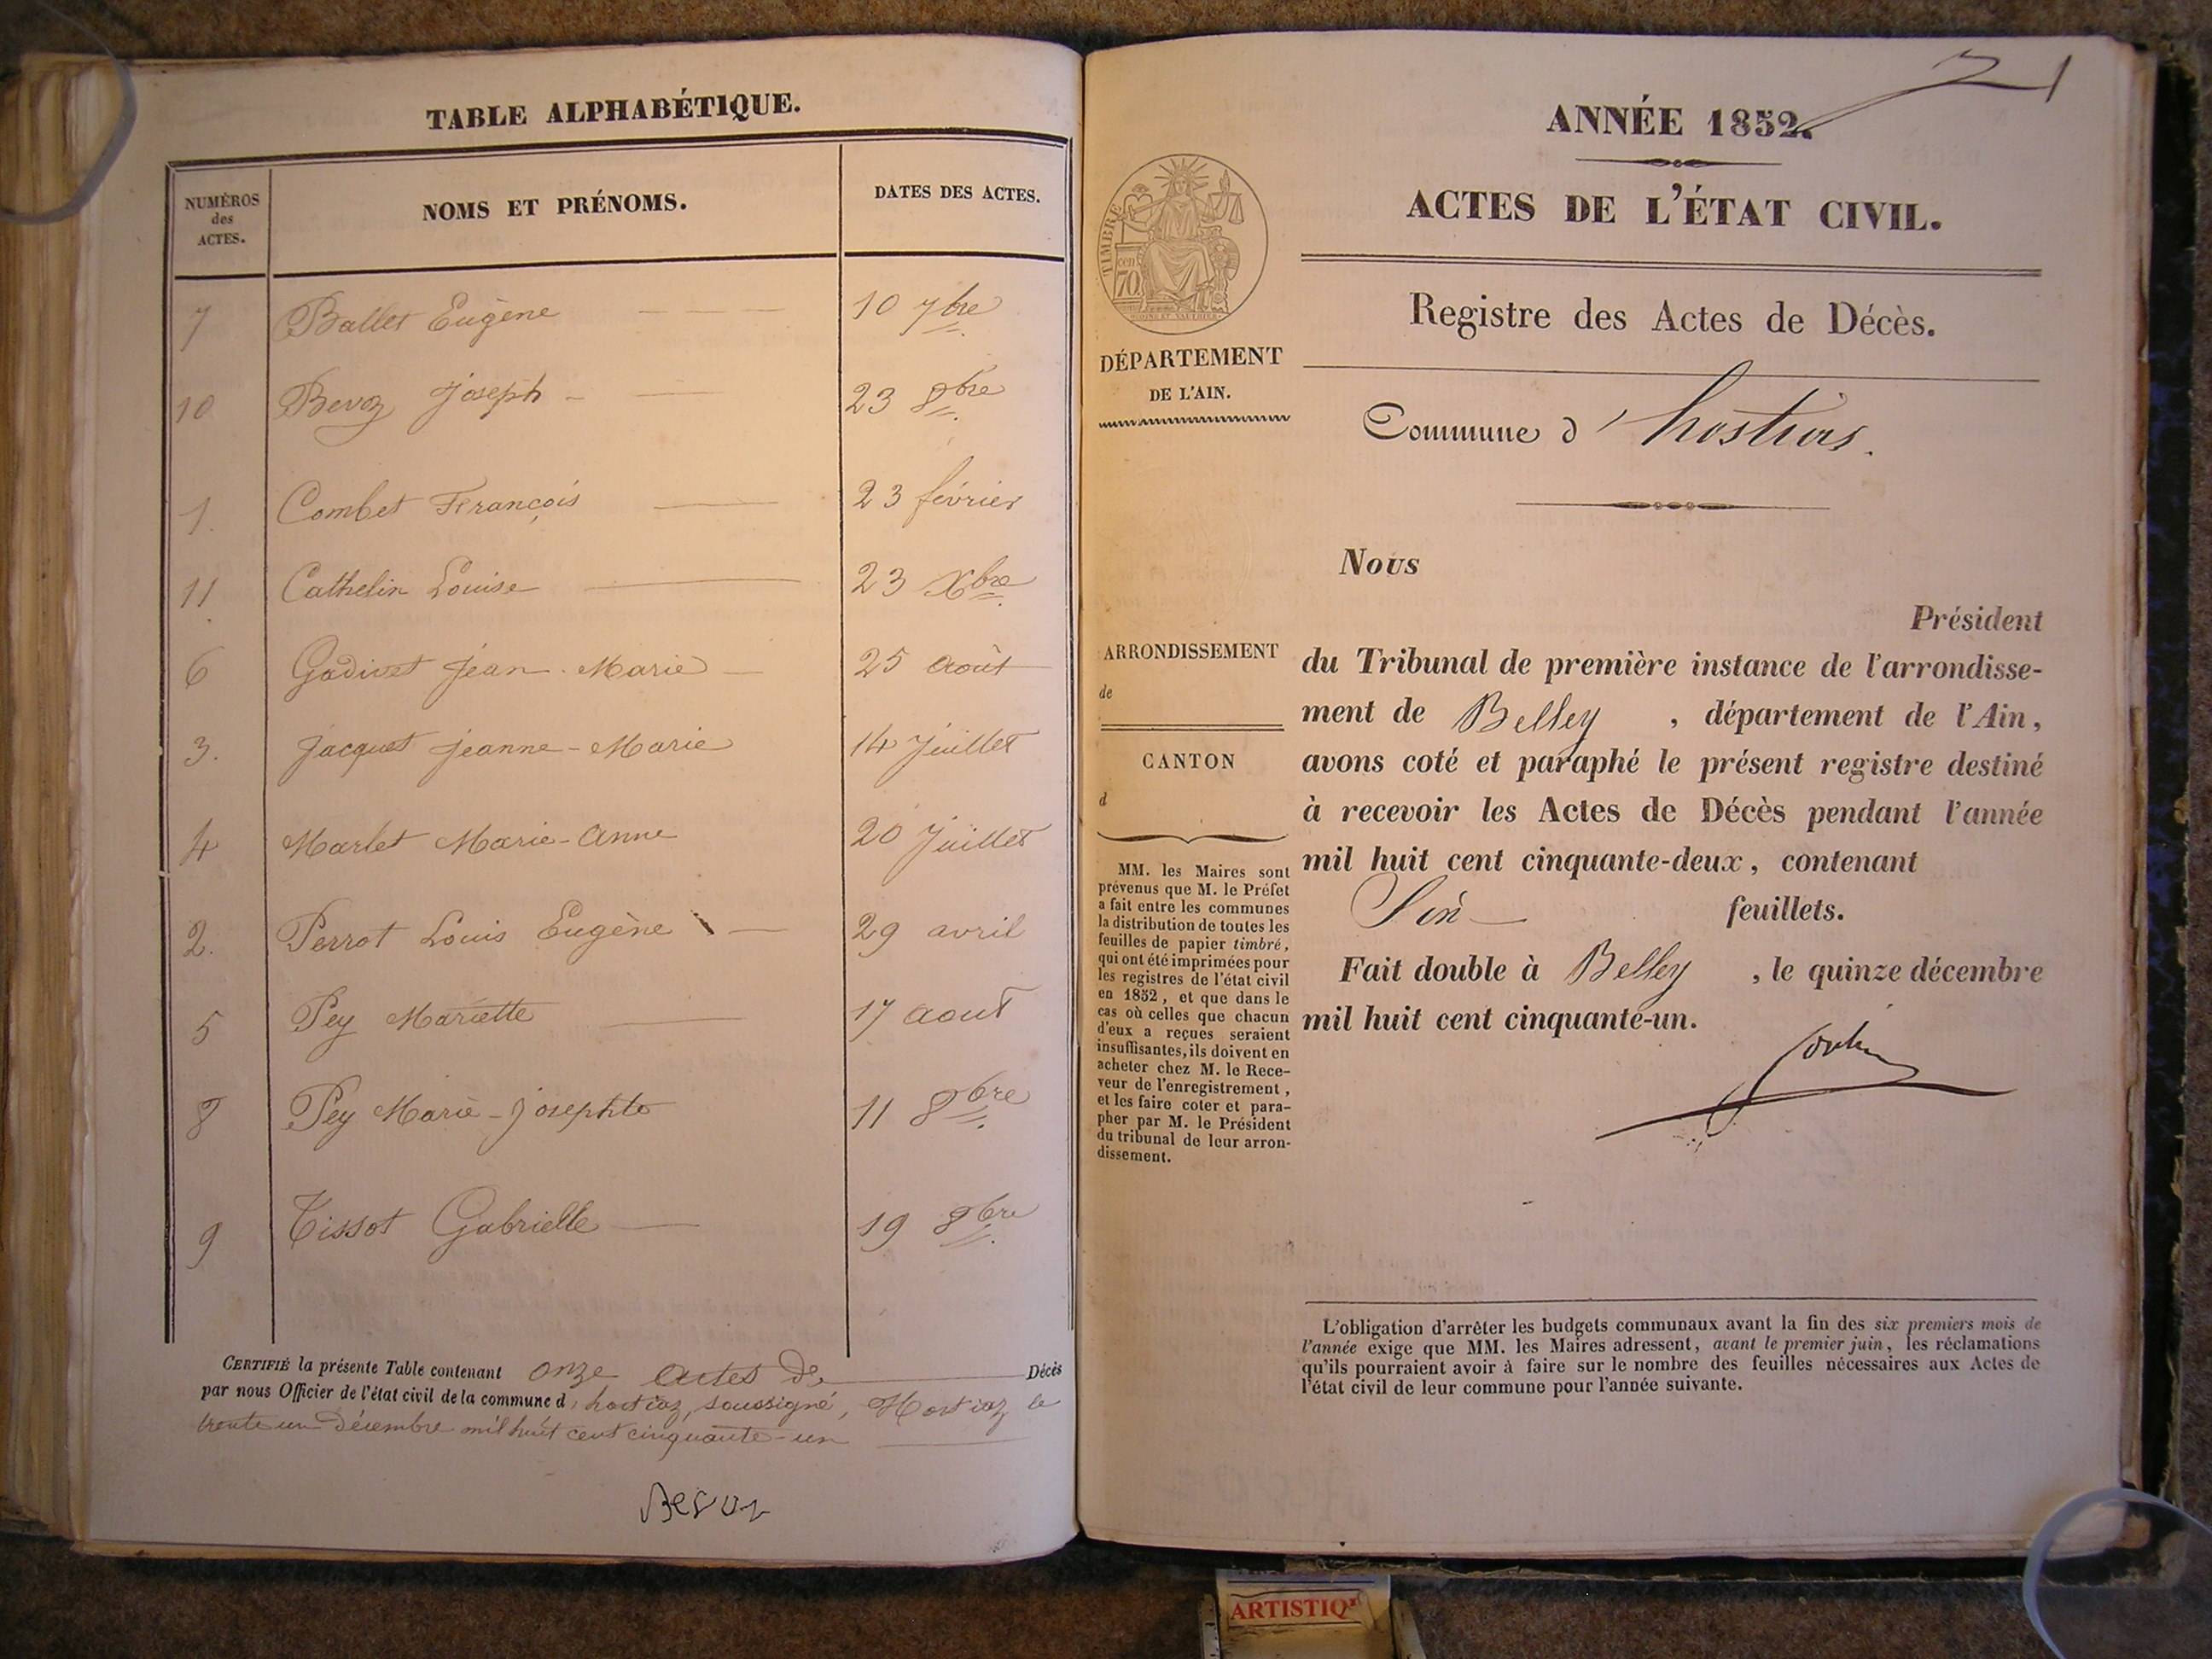 TABLE ALPHABÉTIQUE.
NUMÉROS
des
ACTES.
NOMS ET PRÉNOMS.
DATES DES ACTES.
7 Ballet Eugène 10 7bre
10 Bevoz Joseph 23 8bre
1. Combet François 23 février
11. Cathelin Louise 23 Xbre
6 Godivet Jean-Marie 25 août
3. Jacquet Jeanne-Marie 14 Juillet
4 Marlet Marie-Anne 20 Juillet
2. Perrot Louis Eugène 29 avril
5 Pey Mariette 17 aout
8 Pey Marie-Josephte 11 8bre
9 Tissot Gabrielle 19 8bre
CERTIFIÉ la présente Table contenant onze actes de Décès
par nous Officier de l'état civil de la commune d'hostiaz, soussigné, Hostiaz le
trente un Décembre mil huit cent cinquante-un
Bevoz
ANNÉE 1852.
ACTES DE L'ÉTAT CIVIL.
Registre des Actes de Décès.
TIMBRE
cen
70
DÉPARTEMENT
DE L'AIN.
Commune d'hostias.
Nous
Président
ARRONDISSEMENT
de
CANTON
d
du Tribunal de première instance de l'arrondisse-
ment de Belley, département de l'Ain,
avons coté et paraphé le présent registre destiné
à recevoir les Actes de Décès pendant l'année
mil huit cent cinquante-deux, contenant
Six feuillets.
Fait double à Belley, le quinze décembre
mil huit cent cinquante-un.
MM. les Maires sont
prévenus que M. le Préfet
a fait entre les communes
la distribution de toutes les
feuilles de papier timbré,
qui ont été imprimées pour
les registres de l'état civil
en 1852, et que dans le
cas où celles que chacun
d'eux a reçues seraient
insuffisantes, ils doivent en
acheter chez M. le Rece-
veur de l'enregistrement,
et les faire coter et para-
pher par M. le Président
du tribunal de leur arron-
dissement.
L'obligation d'arrêter les budgets communaux avant la fin des six premiers mois de
l'année exige que MM. les Maires adressent, avant le premier juin, les réclamations
qu'ils pourraient avoir à faire sur le nombre des feuilles nécessaires aux Actes de
l'état civil de leur commune pour l'année suivante.
ARTISTIQ